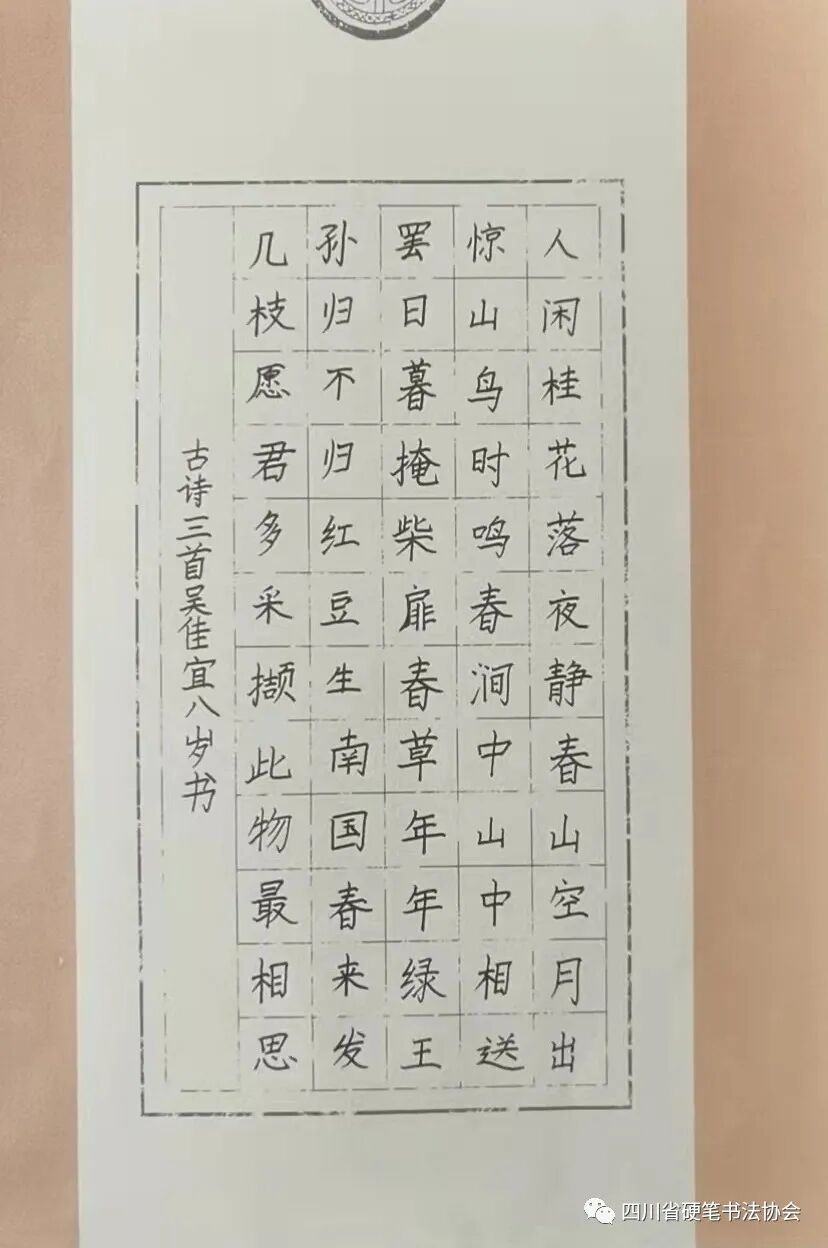 人闲桂花落夜静春山空月出
惊山鸟时鸣春涧中山中相送
罢日暮掩柴扉春草年年绿王
孙归不归红豆生南国春来发
几枝愿君多采撷此物最相思
古诗三首吴佳宜八岁书
四川省硬笔书法协会